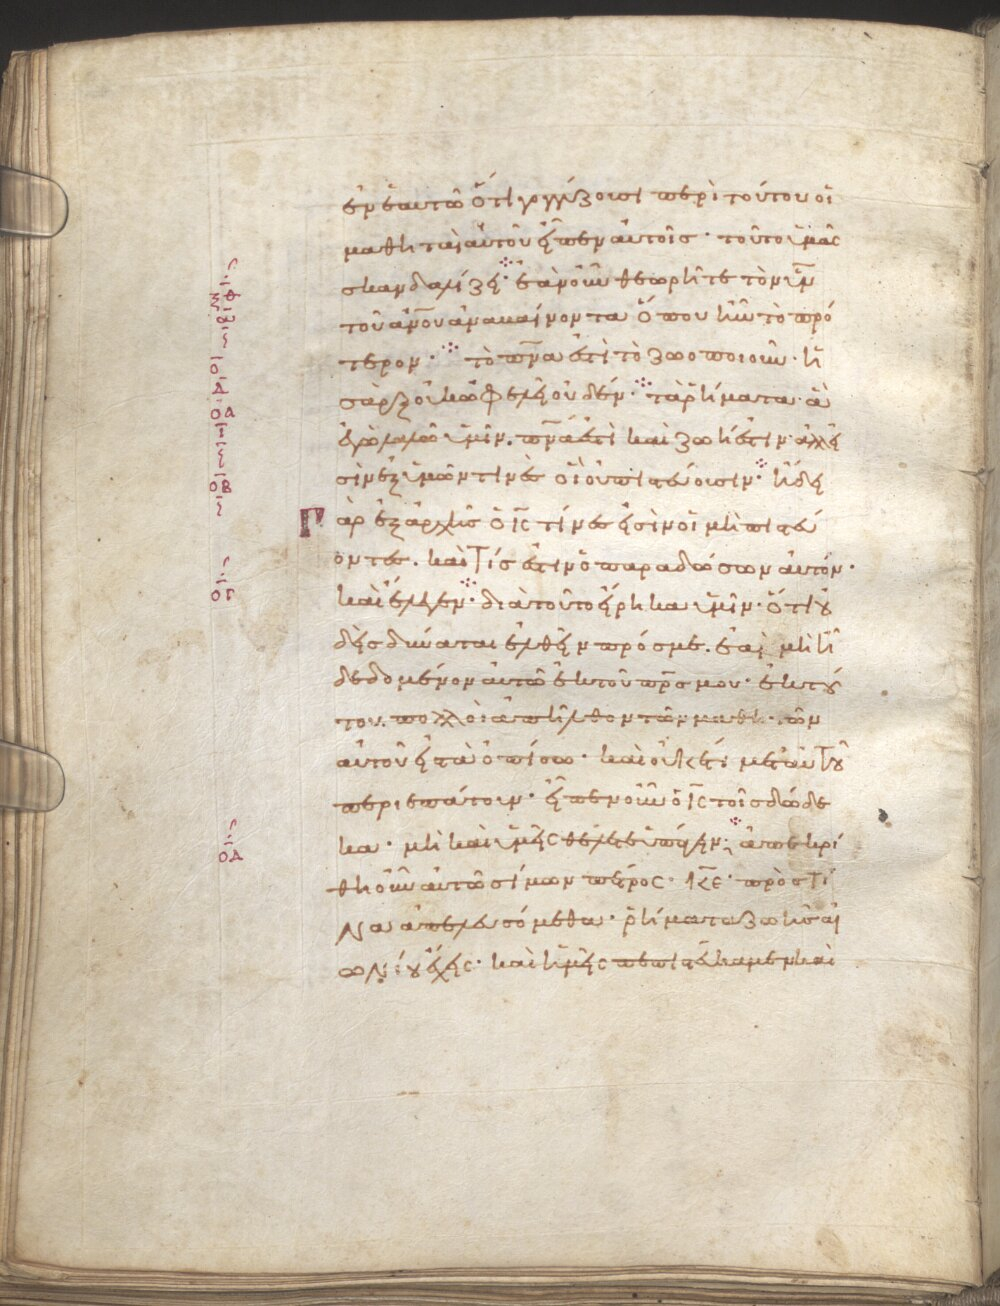 ἐν ἑαυτῶ ὅτι γογγύζουσι περὶ τούτου οἱ
μαθηταὶ αὐτοῦ εἶπεν αὐτοῖς · τοῦτο ὑμᾶς
σκανδαλίζει · ἐὰν οὖν θεωρῆτε τὸν ὑν
τοῦ ανου ἀναβαίνοντα ὅπου ἦν τὸ πρό
τερον · τὸ πνα ἐστὶ τὸ ζωοποιοῦν · ἡ
σὰρξ οὐκ ὠφελεῖ οὐδέν · τὰ ῥήματα ἃ
ἐγὼ λαλῶ ὑμῖν. πνα ἐστὶ καὶ ζωή ἐστιν · ἀλλ εἰ
σὶν ἐξ ὑμῶν τινὲς οἳ οὐ πιστεύουσιν · ἤδει
Γὰρ ἐξ ἀρχῆς ὁ ις τίνες εἰσὶν οἱ μὴ πιστεύ
οντες. καὶ τίς ἐστιν ὁ παραδώσων αὐτόν ·
καὶ ἔλεγεν · διὰ τοῦτο εἴρηκα ὑμῖν · ὅτι οὐ
δεὶς δύναται ἐλθεῖν πρός με. ἐὰν μὴ ἦ
δεδομένον αὐτῶ ἐκ τοῦ πρς μου · ἐκ τού
του. πολλοὶ ἀπῆλθον τῶν μαθητῶν
αὐτοῦ εἰς τὰ ὀπίσω · καὶ οὐκέτι μετ αὐτοῦ
περιεπάτουν · εἶπεν οὖν ὁ ις τοῖς δώδε
κα · μὴ καὶ ὑμεῖς θέλετε ὑπάγειν; ἀπεκρί
θη οὖν αὐτῶ σίμων πέτρος · κε · πρὸς τί
Να ἀπελευσόμεθα · ῥήματα ζωῆς αἰ
ωΝίου ἔχεις · καὶ ἡμεῖς πεπιστεύκαμεν καὶ
ΟΑ
ΟΒ
ΟΓ
ΟΔ